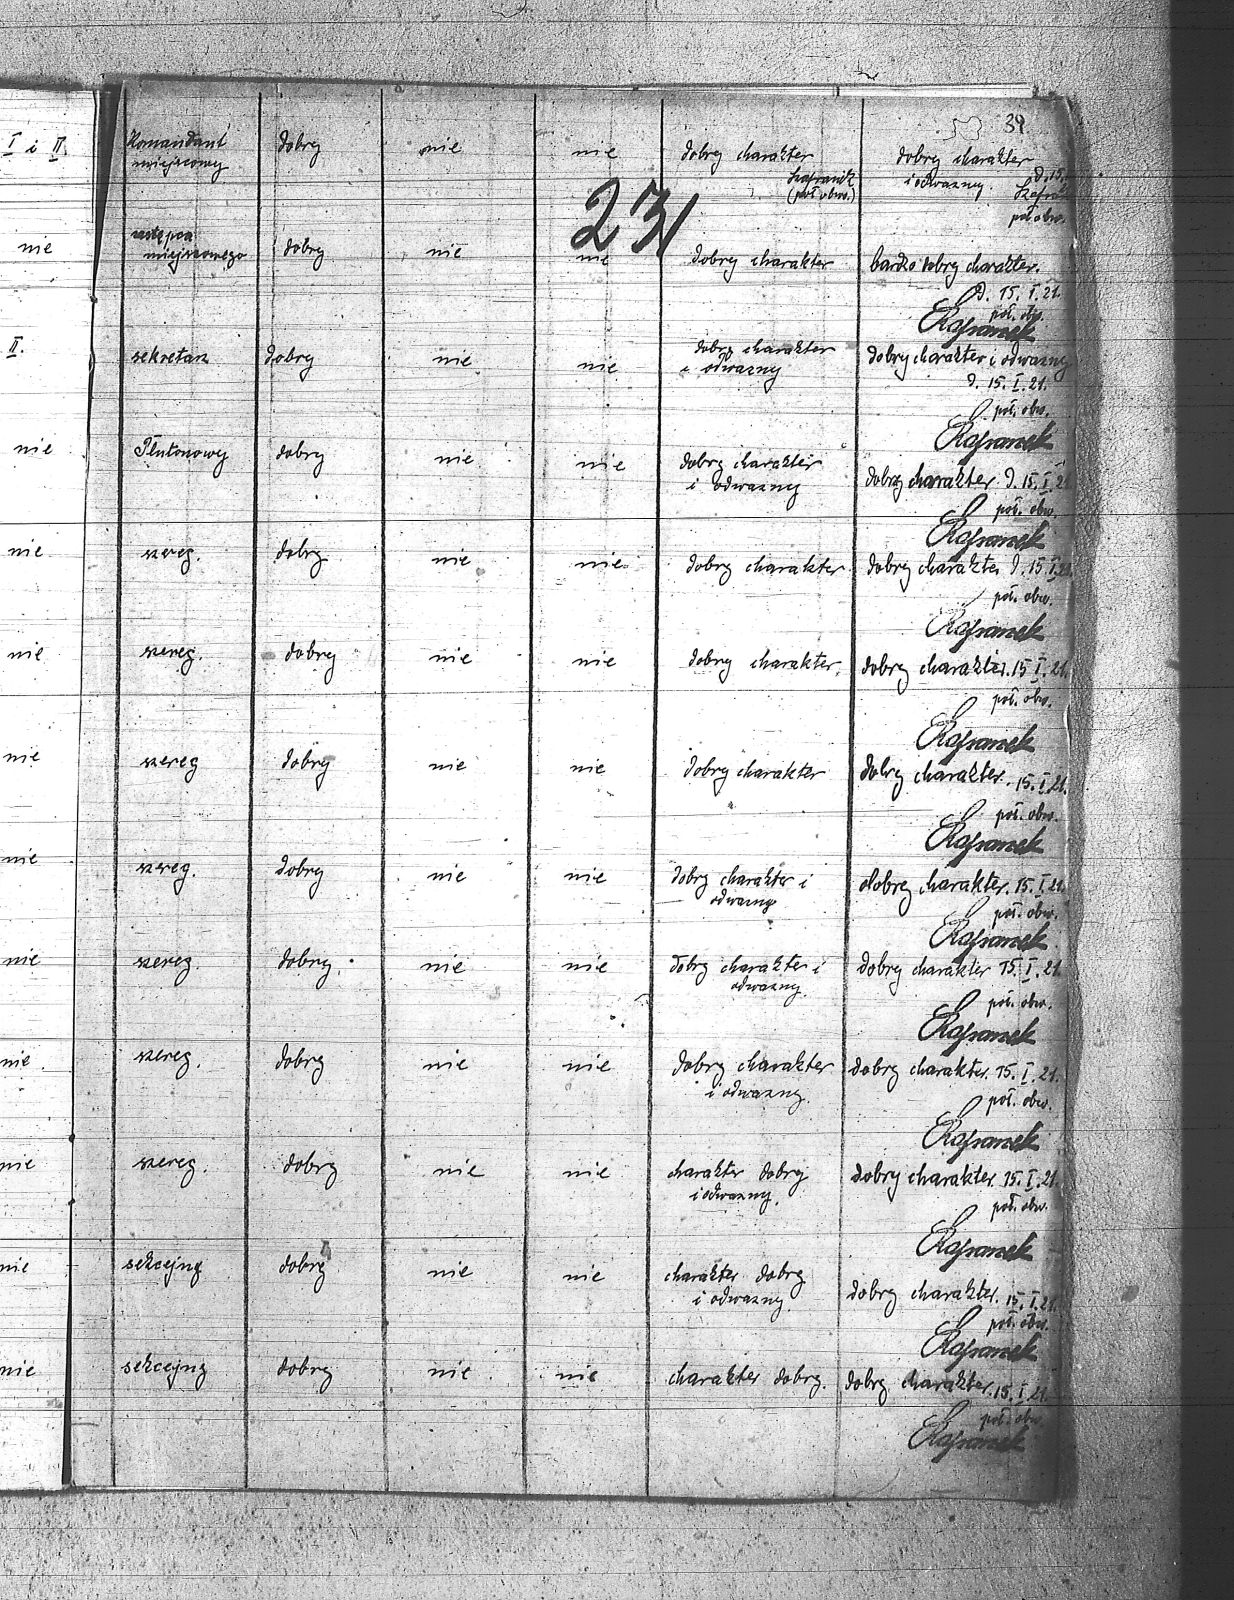 39
I i II Komandant dobry nie nie dobry charakter dobry charakter
miejscowy i odważny D. 15.
(pół obw.) pół obw.
231
nie zastępca dobry nie nie dobry charakter bardzo dobry charakter.
miejscowego D. 15. I. 21.
poł. obw.
Szafranek
II. sekretarz dobry nie nie dobry charakter dobry charakter i odważny
i odważny D. 15. I. 21.
poł. obw.
Szafranek
nie Plutonowy dobry nie nie dobry charakter dobry charakter D. 15. I. 21
i odważny poł. obw.
Szafranek
nie szereg. dobry nie nie dobry charakter dobry charakter D. 15 I. 21
poł. obw.
Szafranek
nie szereg. dobry nie nie dobry charakter. dobry charakter. 15 I. 21.
poł. obw.
Szafranek
nie szereg dobry nie nie dobry charakter dobry charakter. 15. I. 21.
poł. obw.
Szafranek
nie szereg. dobry nie nie dobry charakter i dobry charakter. 15. I. 21.
odważny poł. obw.
Szafranek
nie szereg. dobry. nie nie dobry charakter i dobry charakter 15. I. 21.
odważny. poł. obw.
Szafranek
nie. szereg. dobry nie nie dobry charakter dobry charakter. 15. I. 21.
i odważny. poł. obw.
Szafranek
nie szereg. dobry nie nie charakter dobry dobry charakter 15. I. 21.
i odważny. poł. obw.
Szafranek
nie sekcejny dobry nie nie charakter dobry dobry charakter. 15. I. 21.
i odważny. poł. obw.
Szafranek
nie sekcejny dobry nie nie charakter dobry. dobry charakter. 15. I. 21.
poł. obw.
Szafranek